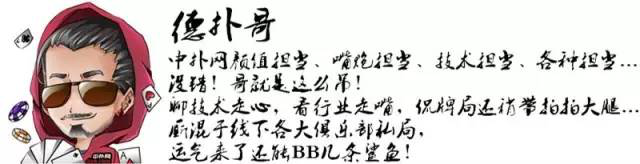 德扑哥
中扑网颜值担当、嘴炮担当、技术担当、各种担当...
没错！哥就是这么吊！
聊技术走心，看行业走嘴，侃牌局还稍带拍拍大腿...
厮混于线下各大俱乐部私局，
运气来了还能BB几条鲨鱼！
中扑网